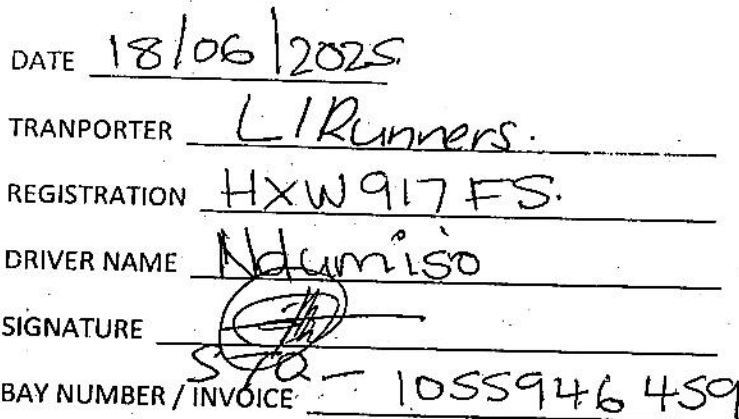 DATE 18/06/2025.
TRANPORTER L/Runners.
REGISTRATION HXW 917 FS.
DRIVER NAME Ndumiso
SIGNATURE
BAY NUMBER / INVOICE STO - 1055946 459